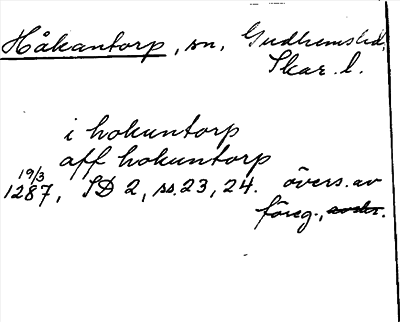 Håkantorp, sn, Gudhems hd,
Skar. l.
i hokuntorp
aff hokuntorp
19/3
1287, SD 2, ss. 23, 24. övers. av
föreg.,